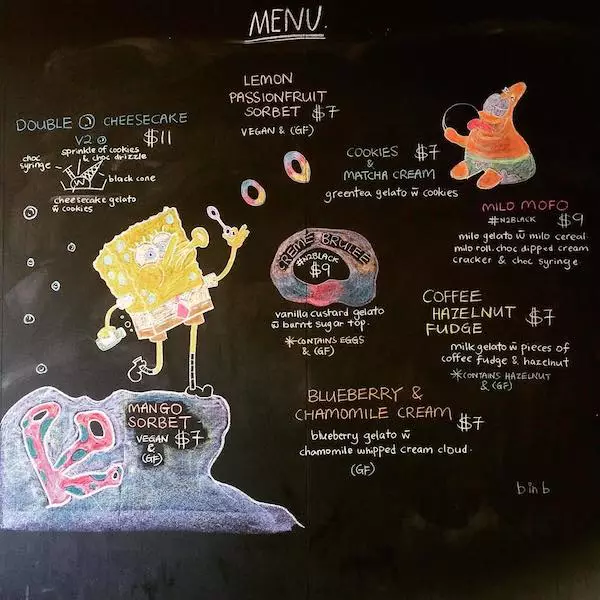 MENU.
LEMON
PASSIONFRUIT
SORBET $7
VEGAN & (GF)
DOUBLE CHEESECAKE
V2 $11
sprinkle of cookies
& choc drizzle
choc
syringe
black cone
cheesecake gelato
w̄ cookies
COOKIES $7
&
MATCHA CREAM
greentea gelato w̄ cookies
MILO MOFO
#N2BLACK $9
milo gelato w̄ milo cereal
milo roll, choc dipped cream
cracker & choc syringe
CREMÉ BRULEE
#N2BLACK
$9
vanilla custard gelato
w̄ burnt sugar top.
*CONTAINS EGGS
& (GF)
COFFEE
HAZELNUT $7
FUDGE
milk gelato w̄ pieces of
coffee fudge & hazelnut
*CONTAINS HAZELNUT
& (GF)
MANGO
SORBET
VEGAN $7
&
(GF)
BLUEBERRY &
CHAMOMILE CREAM $7
blueberry gelato w̄
chamomile whipped cream cloud.
(GF)
b in b